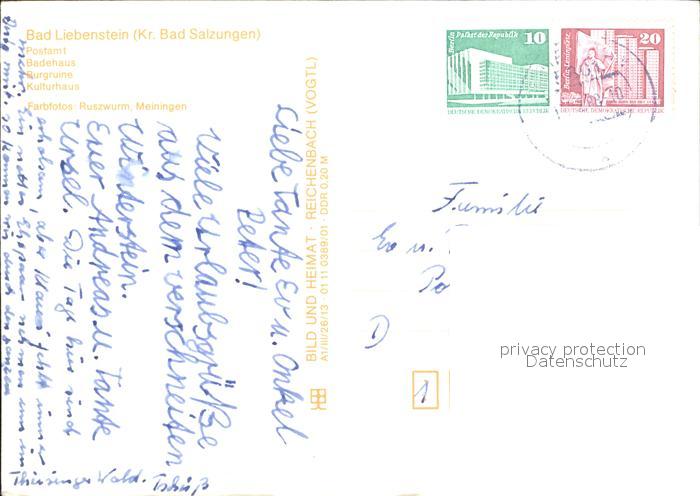 Bad Liebenstein (Kr. Bad Salzungen)
Postamt
Badehaus
Burgruine
Kulturhaus
Farbfotos: Ruszwurm, Meiningen
BILD UND HEIMAT · REICHENBACH (VOGTL)
A1/III/26/13 01 11 0389/01 · DDR 0,20 M
Berlin Palast der Republik
10
DEUTSCHE DEMOKRATISCHE REPUBLIK
Berlin-Leninplatz
20
DEUTSCHE DEMOKRATISCHE REPUBLIK
Liebe Tante Ev u. Onkel
Peter!
Viele Urlaubsgrüße
aus dem verschneiten
Winterstein.
Euer Andreas u. Tante
Ursel. Die Tage hier sind
erholsam, aber Klaus fehlt immer
Ein nettes Ehepaar nehmen uns im
mit, so kommen wir durch den ganzen
Thüringer Wald. Tschüß
Familie
Ev u.
Po
D
1
privacy protection
Datenschutz